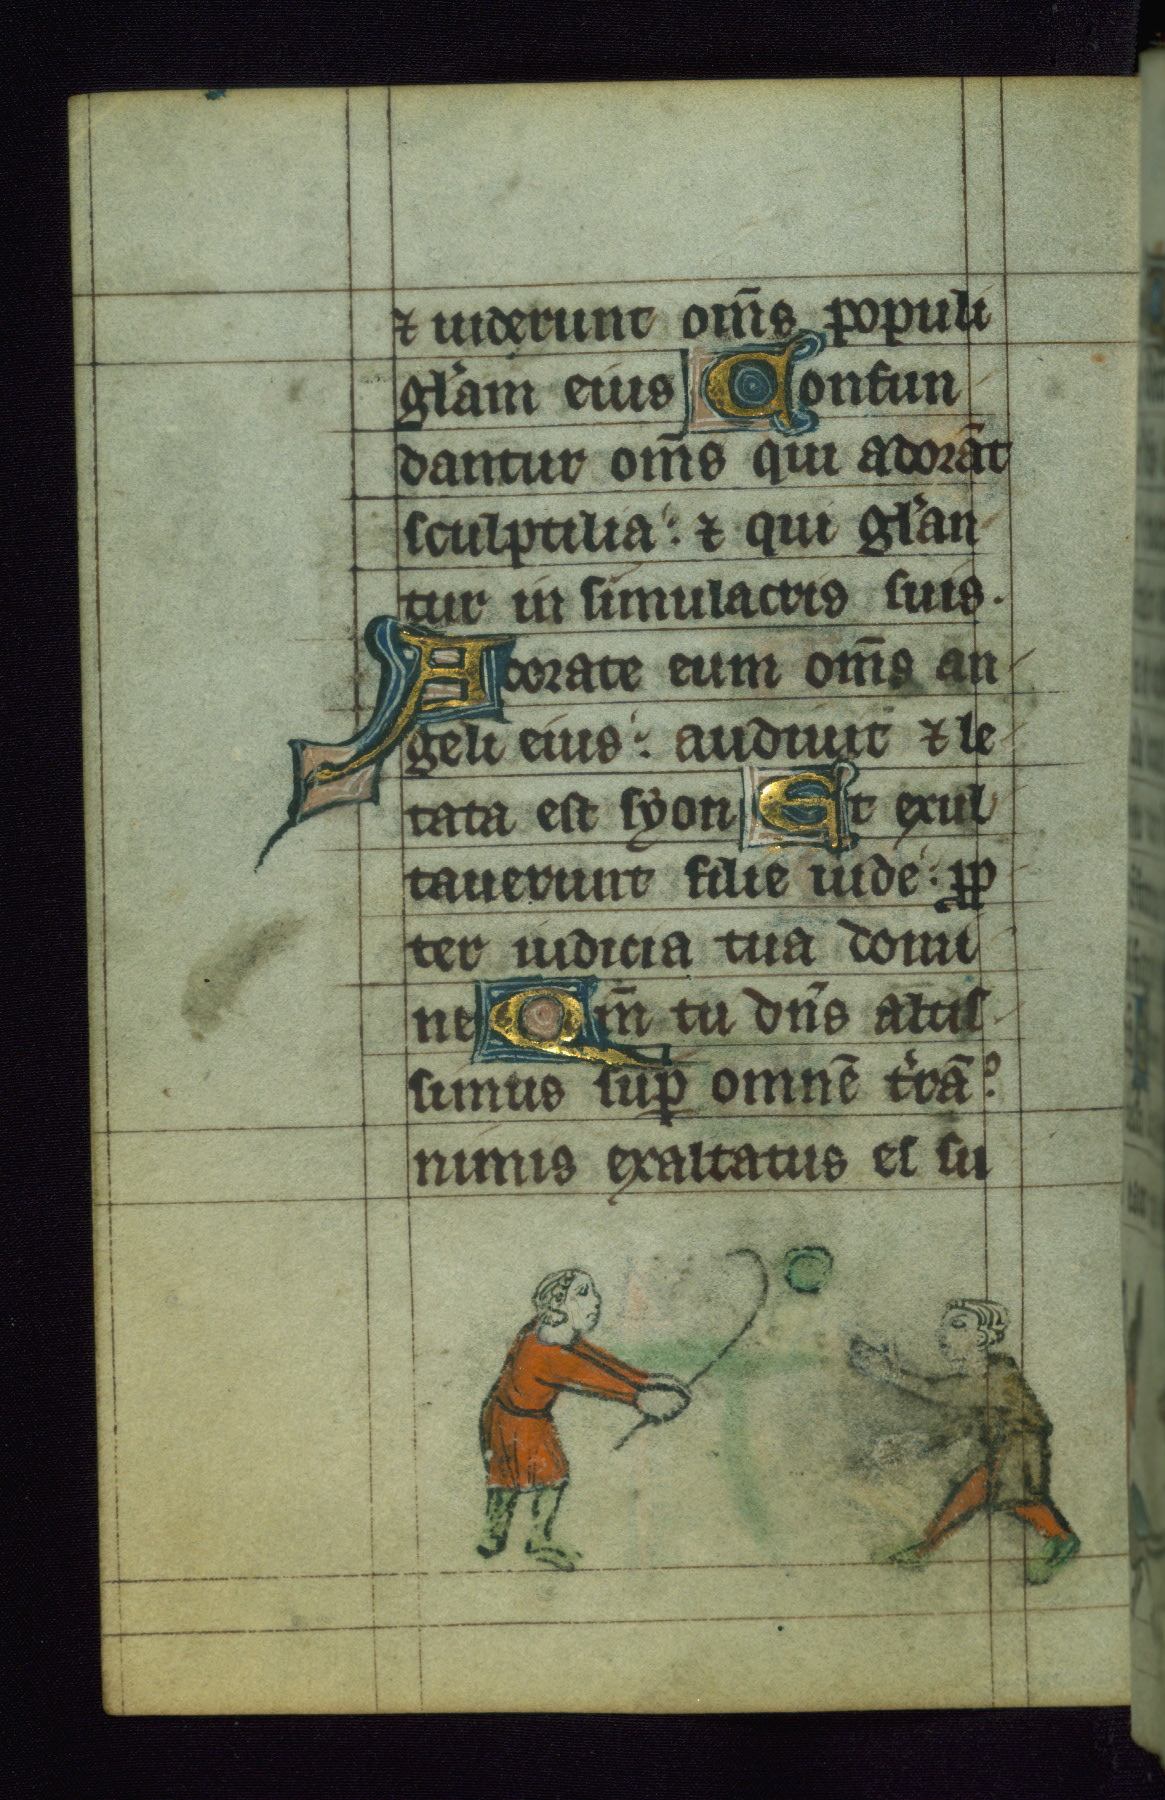 ⁊ uiderunt om̅s populi
gl'am eius Confun
dantur om̅s qui adora̅t
sculptilia : ⁊ qui gl'an
tur in simulacris suis.
Adorate eum om̅s an
geli eius : audiuit ⁊ le
tata est syon Et exul
tauerunt filie iude : ꝓp
ter iudicia tua domi
ne Qm̅ tu dn̅s altis
simus sup̲ omne̅ t'ra̅ :
nimis exaltatus es su